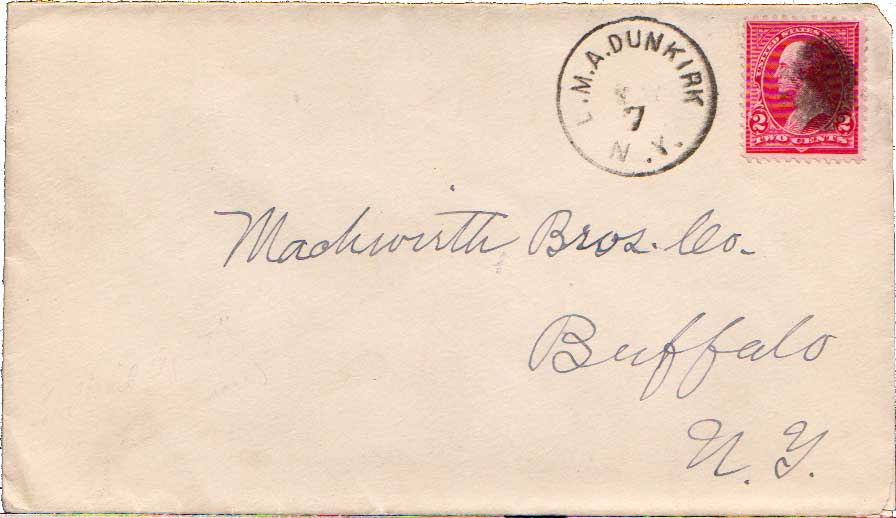 L.M.A. DUNKIRK
7
N.Y.
UNITED STATES
2 2
TWO CENTS
Mackwirth Bros. Co.
Buffalo
N. Y.